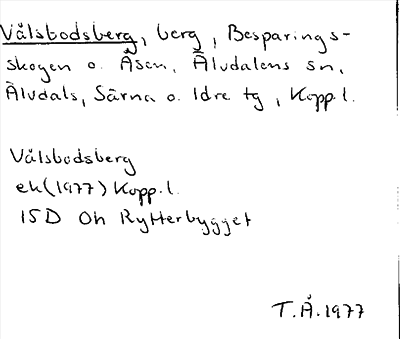 Vålsbodsberg, berg, Besparings-
skogen o. Åsen, Älvdalens sn,
Älvdals, Särna o. Idre tg, Kopp.l.
Vålsbodsberg
ek(1977) Kopp.l.
15D Oh Rytterbygget
T.Å.1977